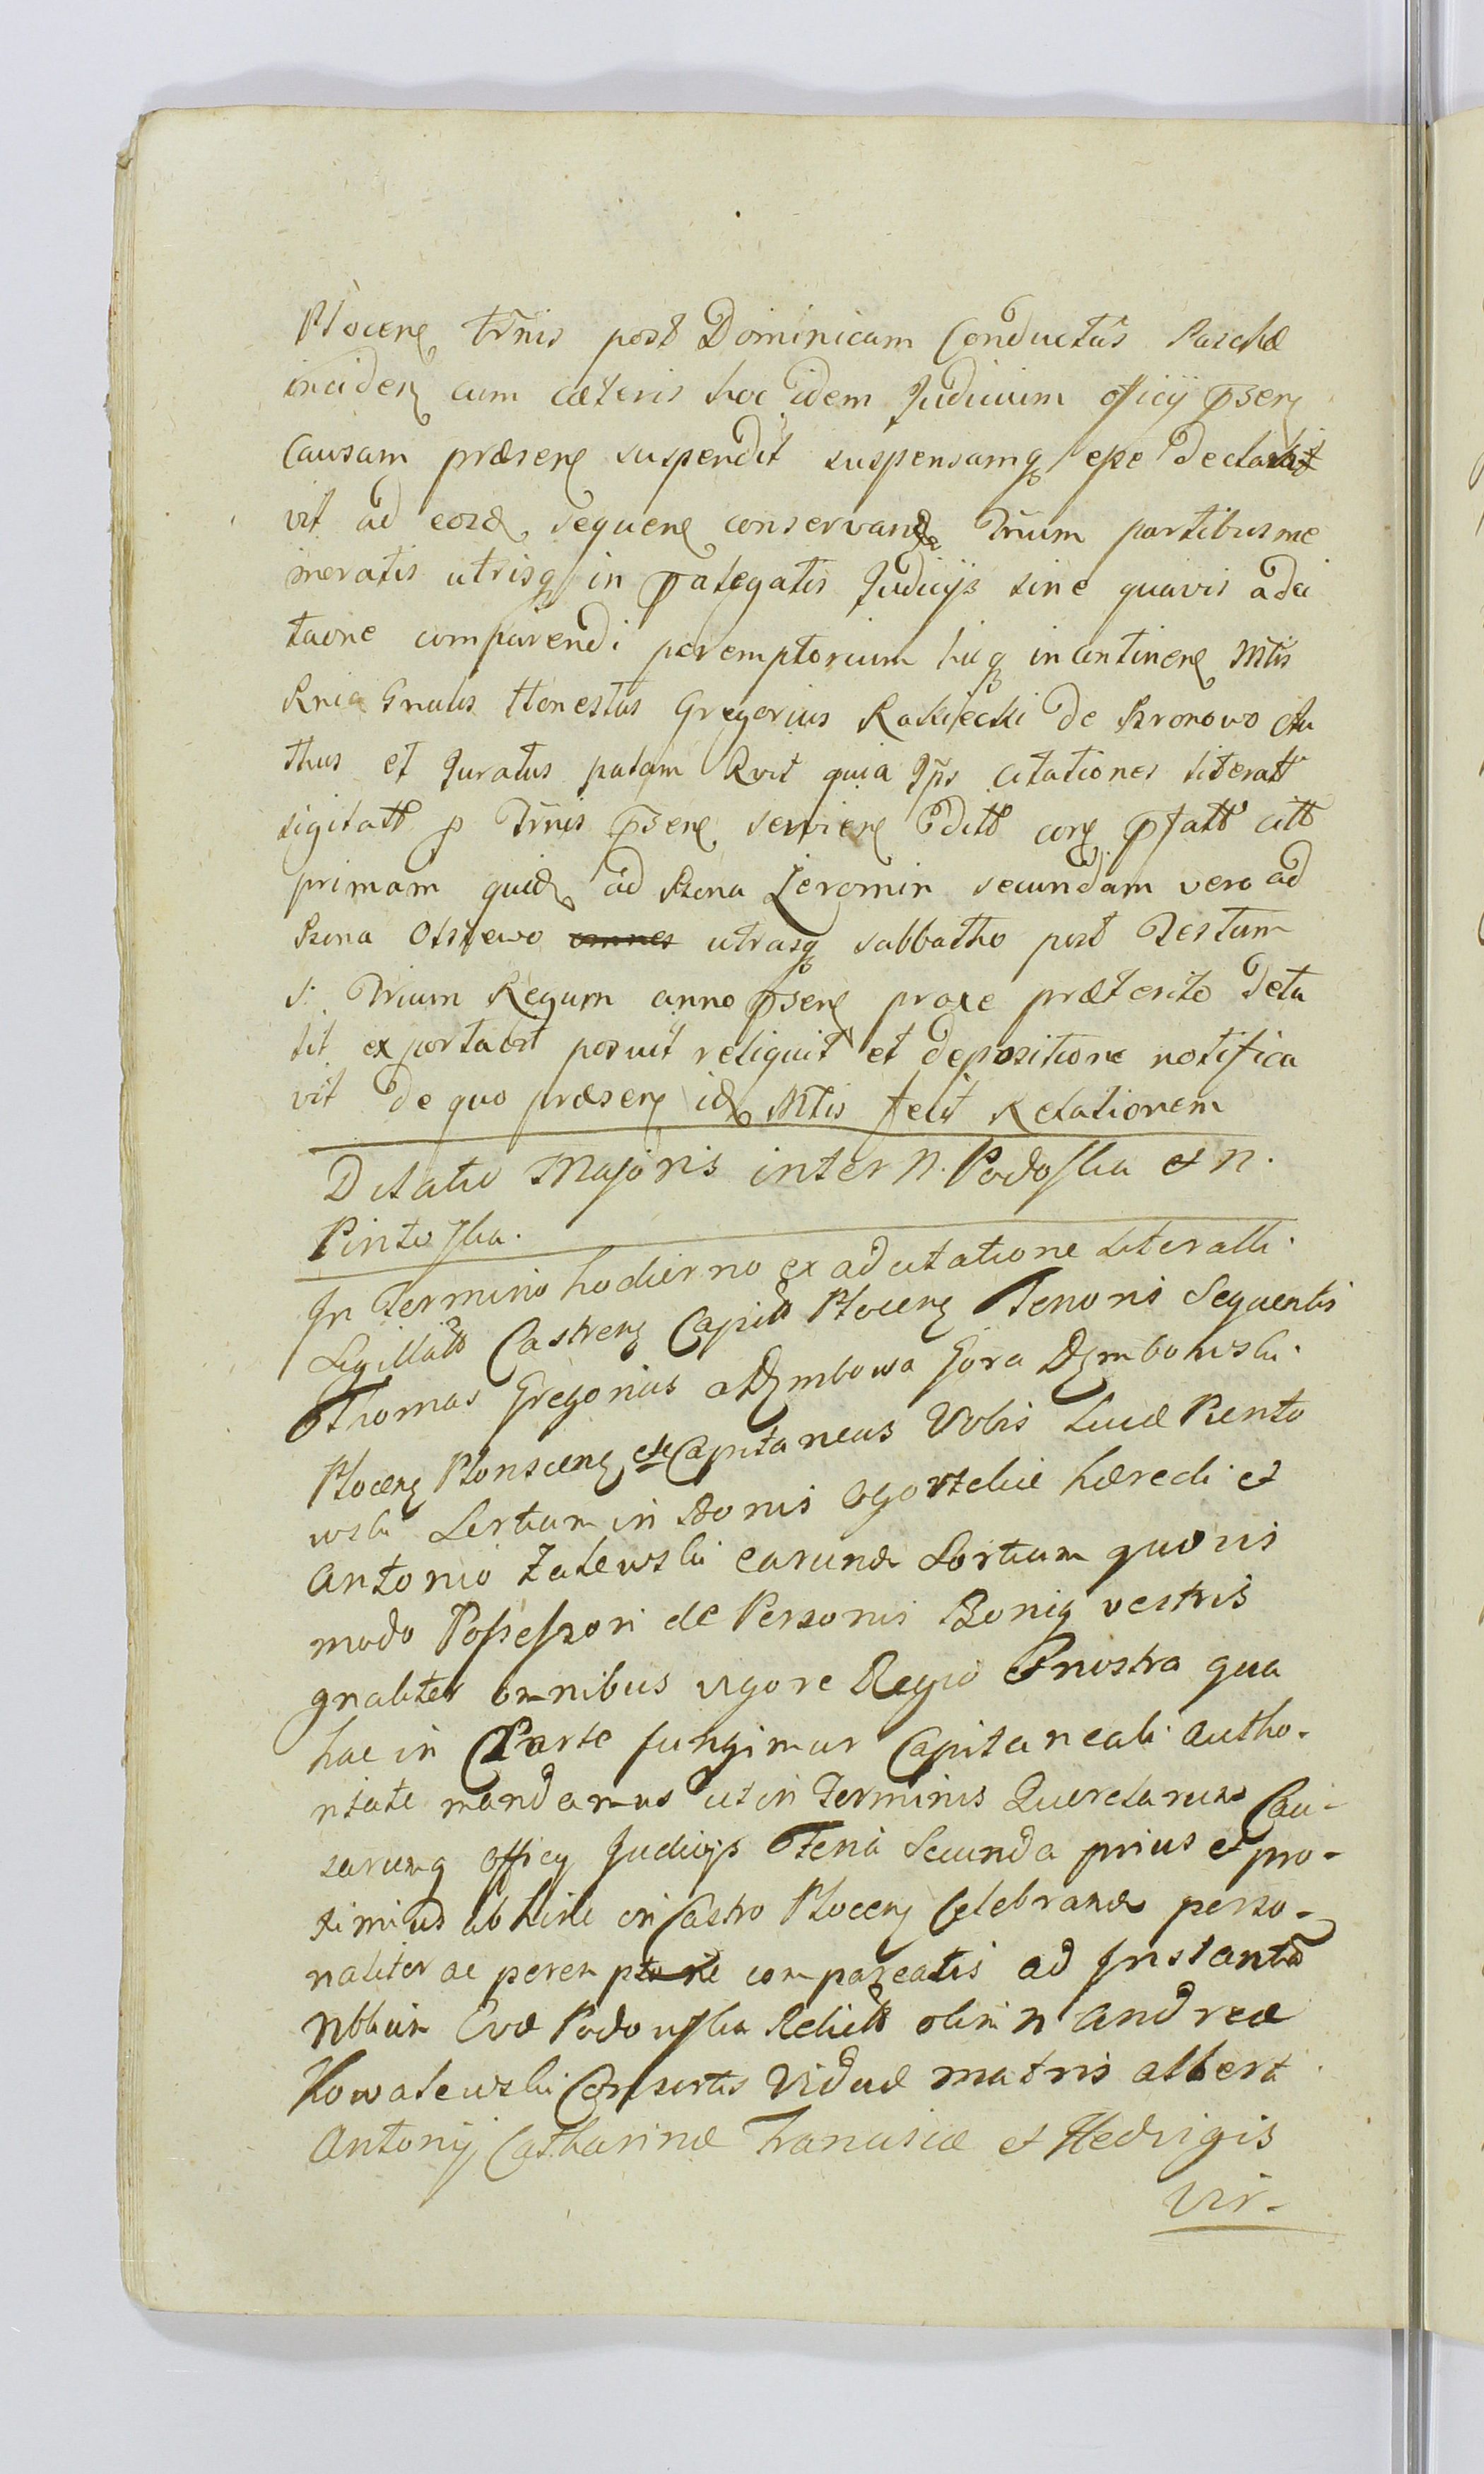 Plocen Trnis post Dominicam Conductus Paschæ
inciden cum cæteris hoc idem Judicium officij pñsen
Causam præsen suspendit suspensamq esse declara
vit ad eosd sequen conservand Trium partibus me
moratis utrisq in pałegatis Judicijs sine quavis adci
taone comparendi peremptorium huq in continen Mtis
Rnia Gnalis Honestus Gregorius Rakiecki de Bronowo Au
thus et Juratus palam Rvit quia Ips citationes literatt
sigilatt p Trnis pñsen servien editt con pfatt citt
primam quid ad Bona Jeromin secundam vero ad
Bona Osiewo utrasq sabbatho post Festum
S: Trium Regum anno pñsen proxe præterito detu
lit exportavit posuit reliquit et depositione notifica
vit de quo præsen id Mtis fecit Relationem
Dilatio Majoris inter N. Podoska et N.
Pintoska.
In Termino hodierno ex adcitatione Literalli
Sigillatt Castren Capitt Plocen Tenoris Sequentis
Thomas Gregorius a Dembowa Gora Dembowski
Plocen Plonscen etc Capitaneus Vobis Lucæ Pento
wski Sortium in Bonis Ogortelice hæredi et
Antonio Zalewski earund Sortium quovis
modo Possessori de Personis Bonisq vestris
gnaliter omnibus vigore Regio et nostra qua
hac in Parte fungimur Capitaneali Autho-
ritate mandamus ut in Terminis Querelarum Cau-
sarumq officij Judicijs Feria Secunda prius et pro-
ximius ab hinc in Castro Plocen Celebrand perso-
naliter ac peremptorie compareatis ad Instantia
Nbbiun Evæ Podowska Relictt olim N Andreæ
Kowalewski Consortis Viduæ matris Alberti
Antonij Catharinæ Franusiæ et Hedvigis
Vir-